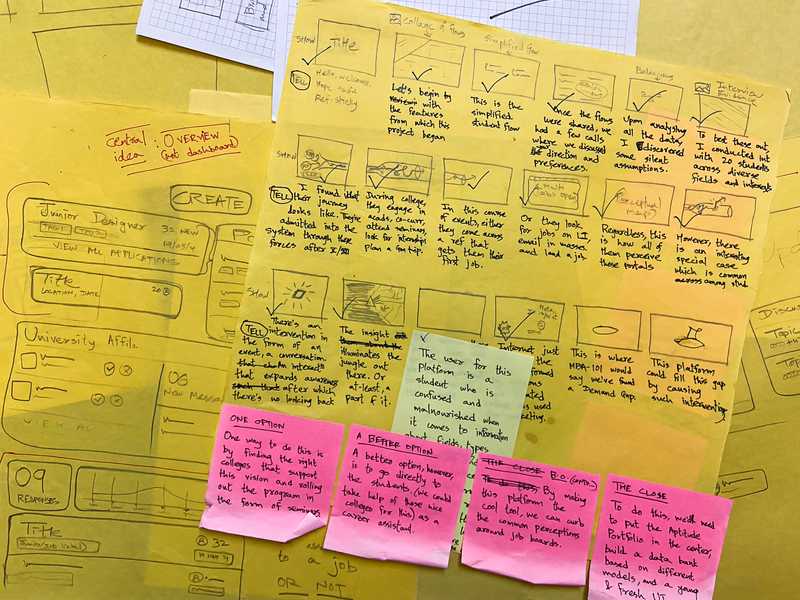 collage of flows
simplified flow
SHOW
TITLE
TELL
Hello, welcome.
Hope safe
Ref. sticky
Let's begin by
reviewing with
the features
from which this
project began
This is the
simplified
student flow
Once the flows
were shared, we
had a few calls
where we discussed
direction and
preferences.
Upon analysing
all the data,
I discovered
some silent
assumptions.
Interview
To test these out
I conducted int
with 20 students
across diverse
fields and interests
SHOW
TELL
I found that
their journey
looks like. They're
admitted into the
system through these
forces after X/XII
During college,
they engage in
acads, co-curr,
attend seminars,
look for internships
plan a fun trip.
In this course
of events, either
they come across
a ref that
gets them their
first job.
Or they look
for jobs on LI,
email in masses
and land a job
Perceptual
maps
Regardless, this
is how all of
them perceive
those portals
However, there
is an interesting
special case
which is common
across among stud
SHOW
TELL
There's an
intervention in
the form of an
event, a conversation
An interact
that expands awareness
after which
there's no looking back
The insight
illuminates the
jungle out
there. Or
at-least, a
part of it.
Internet just
This is where
MBA-101 would
say we've found
a Demand Gap.
This platform
could fill this gap
by causing
such intervention
The user for this
platform is a
student who is
confused and
malnourished when
it comes to information
about fields, types
ONE OPTION
One way to do this is
by finding the right
colleges that support
this vision and rolling
out the program in
the form of seminars
A BETTER OPTION
A better option, however,
is to go directly to
the students. (We could
take help of those nice
colleges for this) as a
career assistant.
THE CLOSE B.O. (CONTD.)
By making
this platform the
cool tool, we can curb
the common perceptions
around job boards.
THE CLOSE
To do this, we'll need
to put the Aptitude
Portfolio in the center,
build a data bank
based on different
models, and a young
& fresh UI
central
idea: OVERVIEW
(not dashboard)
CREATE
Junior Designer
35 NEW
VIEW ALL APPLICATIONS
Title
LOCATION, DATE
20
University Affil.
VIEW ALL
06
New Message
09
RESPONSES
Title
32
to a job
OR NOT
Discu
Topic
Topic